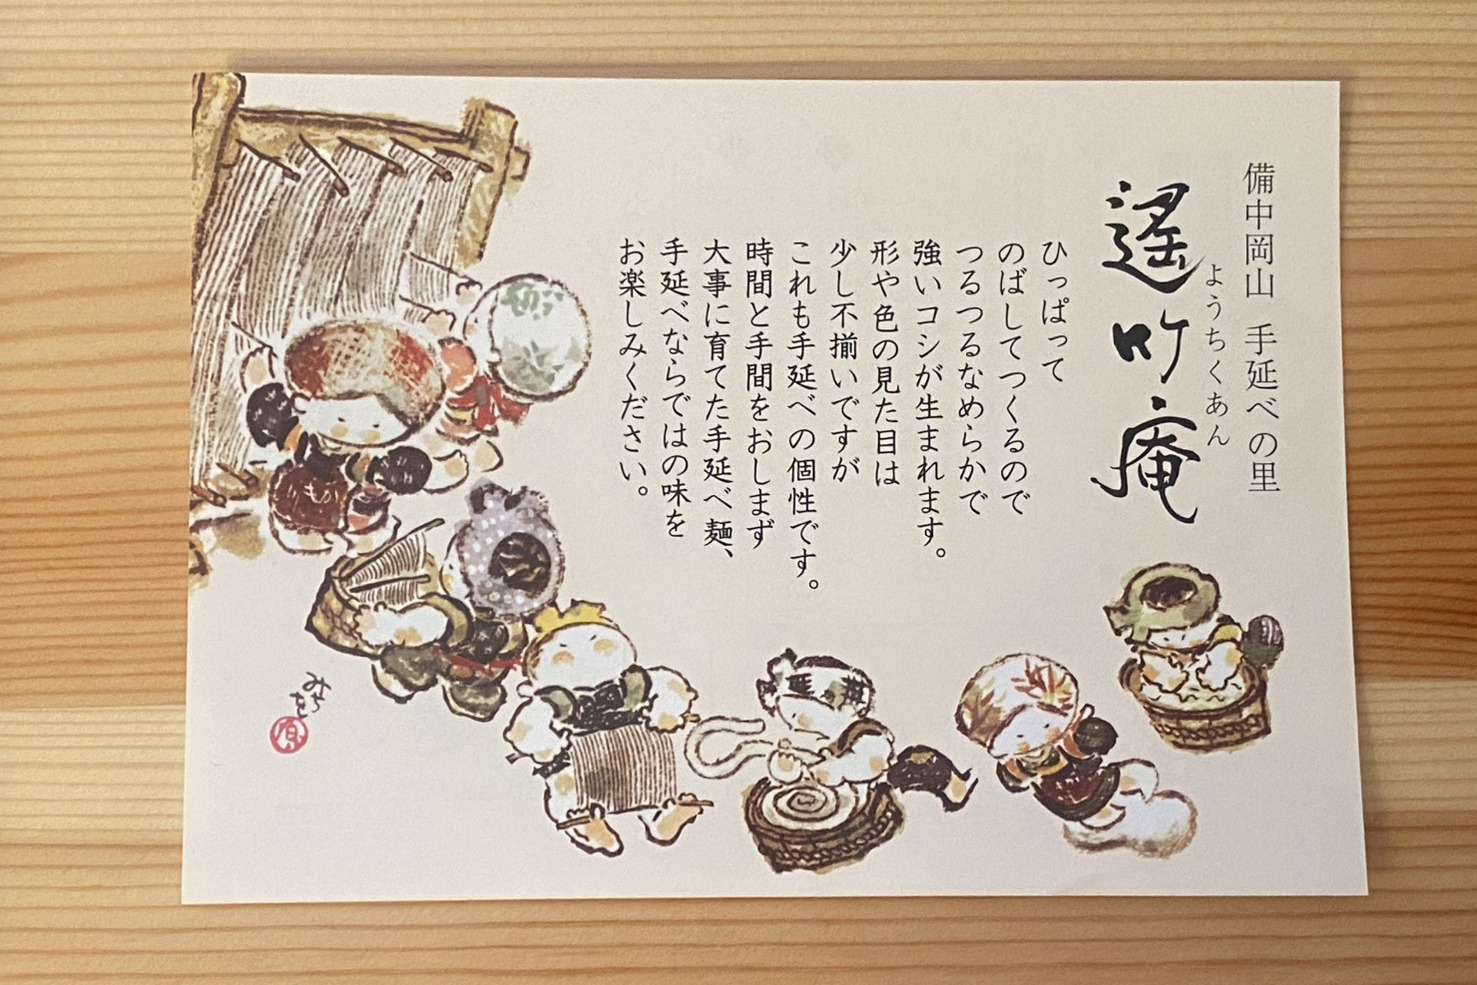 備中岡山 手延べの里
遙竹庵
ようちくあん
ひっぱって
のばしてつくるので
つるつるなめらかで
強いコシが生まれます。
形や色の見た目は
少し不揃いですが
これも手延べの個性です。
時間と手間をおしまず
大事に育てた手延べ麺、
手延べならではの味を
お楽しみください。
みちを